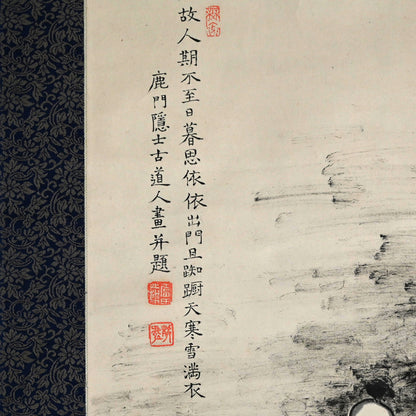 故人期不至日暮思依依出門且踟躕天寒雪滿衣
鹿門隱士古道人畫并題